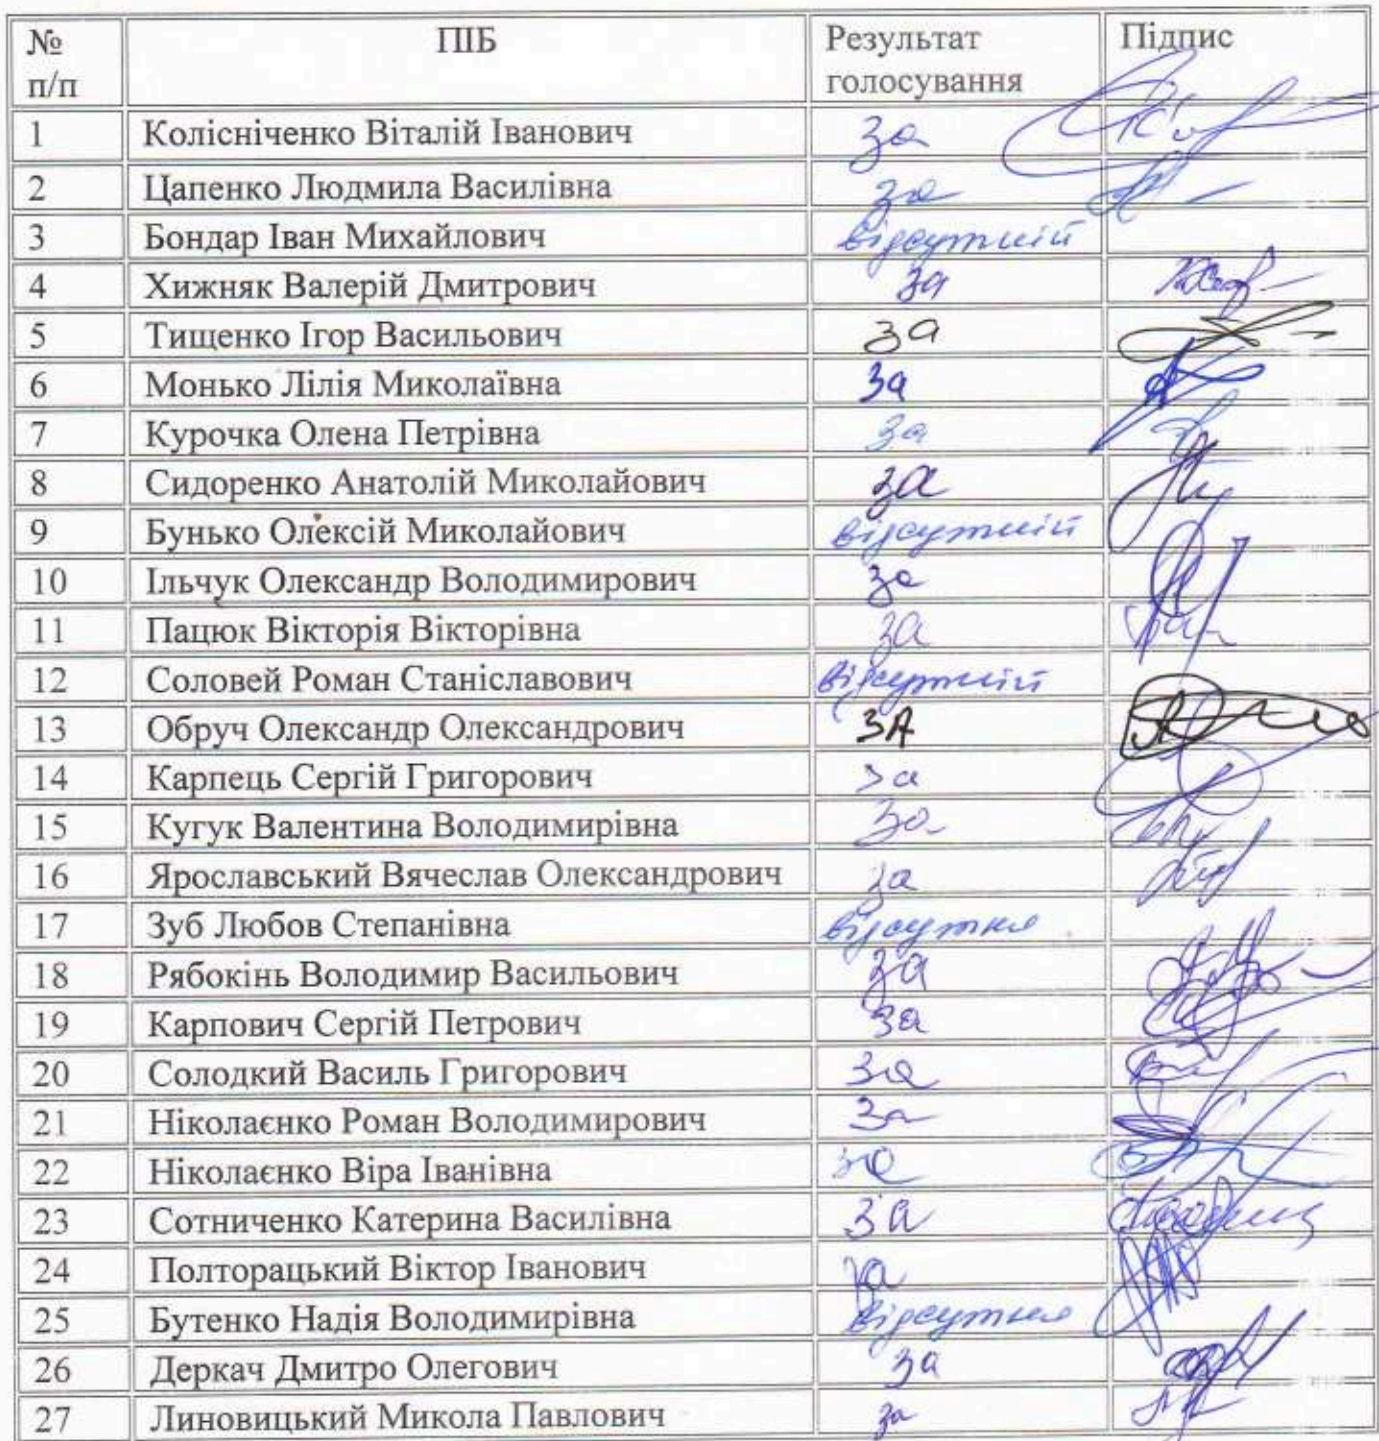 № п/п ПІБ Результат голосування Підпис
1 Колісніченко Віталій Іванович за
2 Цапенко Людмила Василівна за
3 Бондар Іван Михайлович відсутній
4 Хижняк Валерій Дмитрович за
5 Тищенко Ігор Васильович за
6 Монько Лілія Миколаївна за
7 Курочка Олена Петрівна за
8 Сидоренко Анатолій Миколайович за
9 Бунько Олексій Миколайович відсутній
10 Ільчук Олександр Володимирович за
11 Пацюк Вікторія Вікторівна за
12 Соловей Роман Станіславович відсутній
13 Обруч Олександр Олександрович ЗА
14 Карпець Сергій Григорович за
15 Кугук Валентина Володимирівна за
16 Ярославський Вячеслав Олександрович за
17 Зуб Любов Степанівна відсутня
18 Рябокінь Володимир Васильович за
19 Карпович Сергій Петрович за
20 Солодкий Василь Григорович за
21 Ніколаєнко Роман Володимирович за
22 Ніколаєнко Віра Іванівна за
23 Сотниченко Катерина Василівна за
24 Полторацький Віктор Іванович за
25 Бутенко Надія Володимирівна відсутня
26 Деркач Дмитро Олегович за
27 Линовицький Микола Павлович за